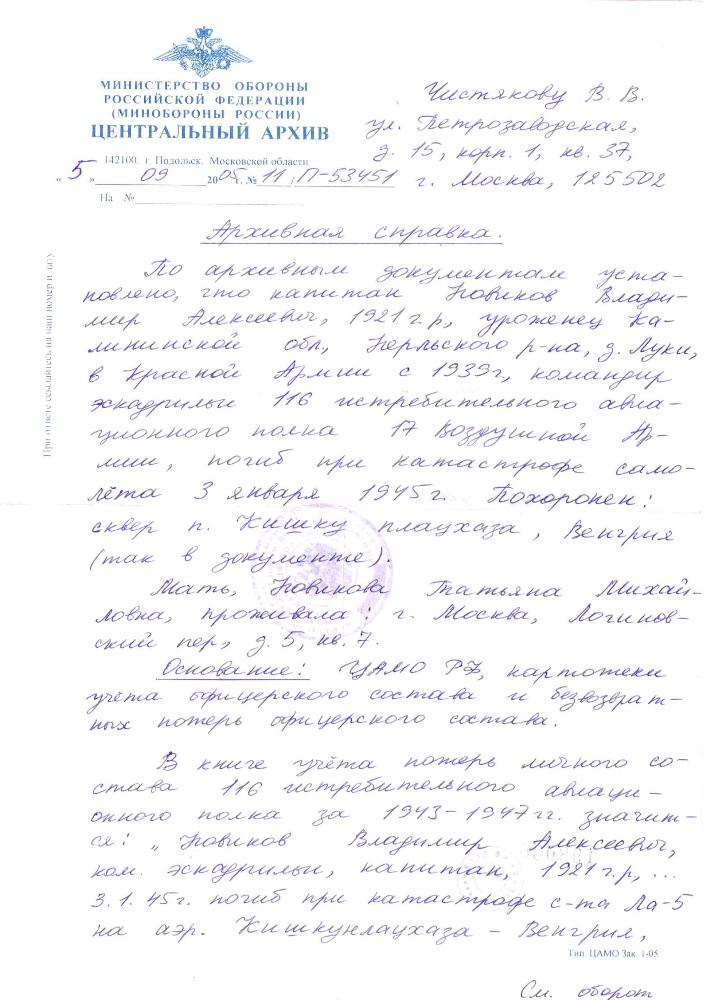 МИНИСТЕРСТВО ОБОРОНЫ
РОССИЙСКОЙ ФЕДЕРАЦИИ
(МИНОБОРОНЫ РОССИИ)
ЦЕНТРАЛЬНЫЙ АРХИВ
142100, г. Подольск, Московской области
«5» 09 2005 г. № 11/П-53451
На №
Чистякову В. В.
ул. Петрозаводская,
д. 15, корп. 1, кв. 37,
г. Москва, 125502
При ответе ссылайтесь на наш номер и дату
Архивная справка.
По архивным документам уста-
новлено, что капитан Новиков Влади-
мир Алексеевич, 1921 г.р., уроженец Ка-
лининской обл., Нерльского р-на, д. Луки,
в Красной Армии с 1939г., командир
эскадрильи 116 истребительного авиа-
ционного полка 17 Воздушной Ар-
мии, погиб при катастрофе само-
лёта 3 января 1945г. Похоронен:
сквер п. Кишку плацхаза, Венгрия
(так в документе).
Мать, Новикова Татьяна Михай-
ловна, проживала: г. Москва, Логинов-
ский пер., д. 5, кв. 7.
Основание: ЦАМО РФ, картотеки
учета офицерского состава и безвозврат-
ных потерь офицерского состава.
В книге учёта потерь личного со-
става 116 истребительного авиаци-
онного полка за 1943-1947 гг. значит-
ся: „Новиков Владимир Алексеевич,
ком. эскадрильи, капитан, 1921 г.р., ...
3.1.45г. погиб при катастрофе с-та Ла-5
на аэр. Кишкунлацхаза - Венгрия,
Тип. ЦАМО Зак. 1-05
См. оборот